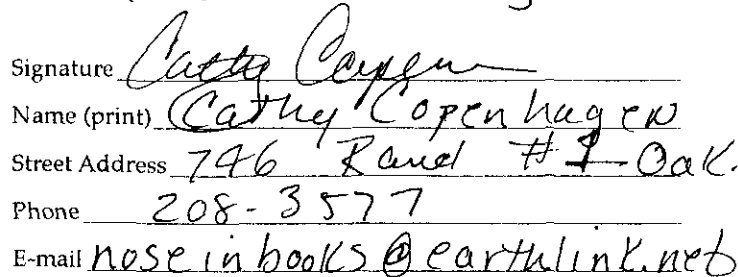 Signature Cathy Copen
Name (print) Cathy Copenhagen
Street Address 746 Rand #1 Oak.
Phone 208-3577
E-mail noseinbooks@earthlink.net